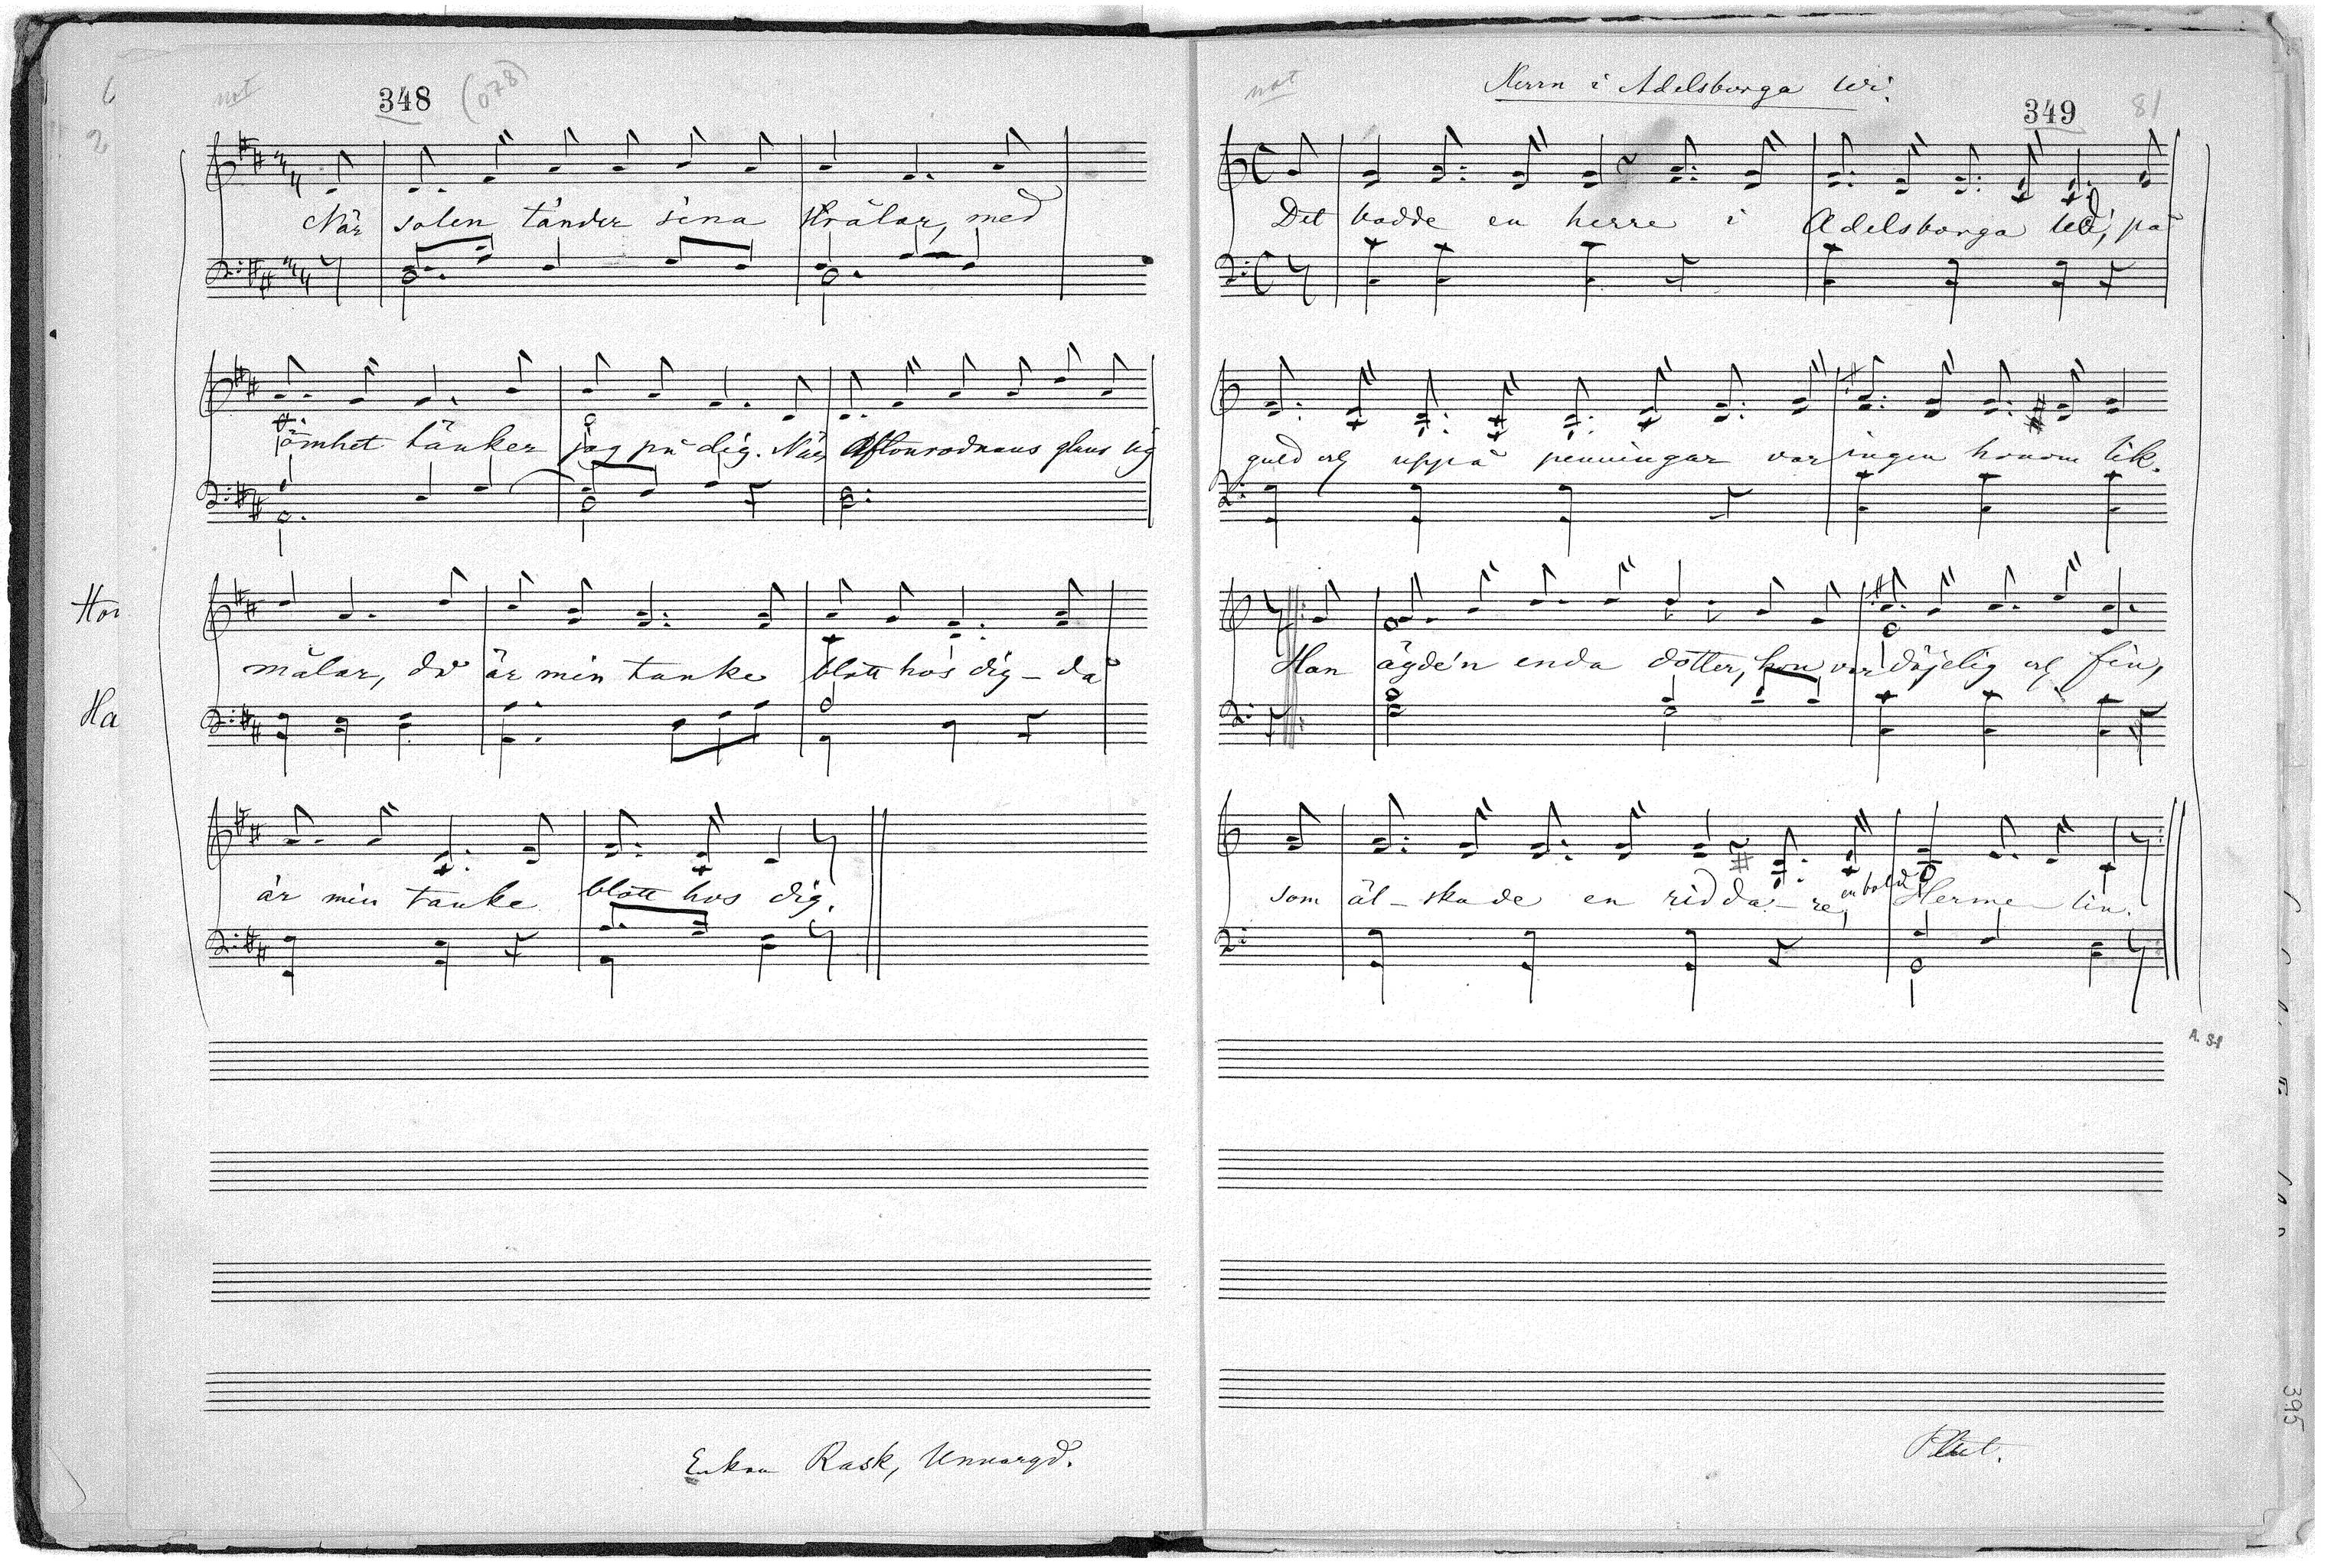 6
not
348
(078)
2
När solen tänder sina strålar, med
ömhet tänker jag på dig. När Aftonrodnans glans sig
Hon
målar, då är min tanke blott hos dig – da
Ha
är min tanke blott hos dig.
Enkan Rask,
not
Herrn i Adelsborga
349
81
Det bodde en herre i Adelsborga led, på
guld og uppå penningar var ingen honom lik.
Han ägde'n enda dotter, hon var däjelig og fin,
som äl – skade en ridda – re, en bold Hermelin.
395